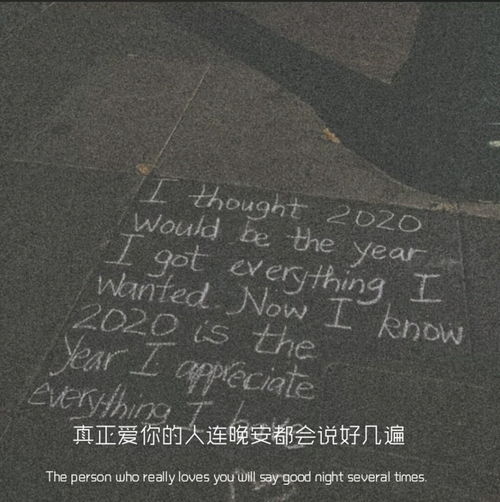 I thought 2020
would be the year
I got everything I
wanted. Now I know
2020 is the
year I appreciate
everything I have
真正爱你的人连晚安都会说好几遍
The person who really loves you will say good night several times.